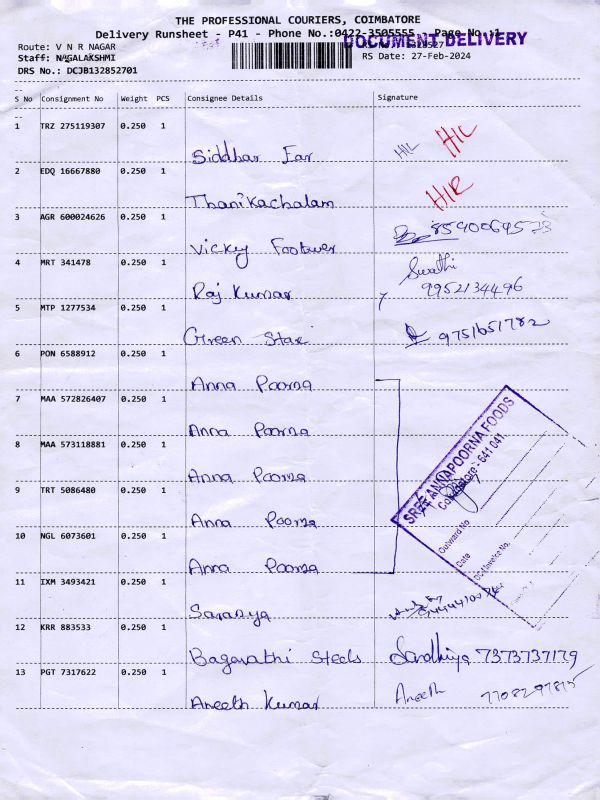 THE PROFESSIONAL COURIERS, COIMBATORE
Delivery Runsheet - P41 - Phone No.:0422-3505555 Page No.:1
DOCUMENT DELIVERY
Route: V N R NAGAR
Staff: NAGALAKSHMI
RS Date: 27-Feb-2024
DRS No.: DCJB132852701
S No Consignment No Weight PCS Consignee Details Signature
1 TRZ 275119307 0.250 1 Siddhar Ear
2 EDQ 16667880 0.250 1 Thanikachalam
3 AGR 600024626 0.250 1 Vickey Footwer
4 MRT 341478 0.250 1 Raj Kumar Swathi 9952134496
5 MTP 1277534 0.250 1 Green Star 9751651782
6 PON 6588912 0.250 1 Anna Poorna
7 MAA 572826407 0.250 1 Anna Poorna
8 MAA 573118881 0.250 1 Anna Poorna
9 TRT 5086480 0.250 1 Anna Poorna
10 NGL 6073601 0.250 1 Anna Poorna
SREE ANNAPOORNA FOODS
Coimbatore - 641 041.
Outward No
Date
DC/Invoice No.
11 IXM 3493421 0.250 1 Saranya
12 KRR 883533 0.250 1 Bagavathi Steels Sandhiya 7373737179
13 PGT 7317622 0.250 1 Aneeth Kumar Aneeth 7708297815